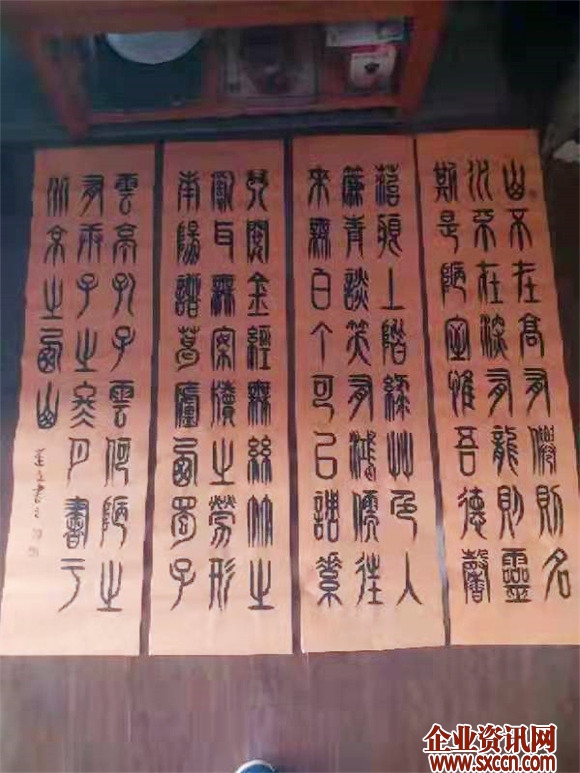 山不在高有僊則名
水不在深有龍則靈
斯是陋室惟吾德馨
苔痕上階綠艸色入
簾青談笑有鴻儒往
來無白丁可以調素
琴閱金經無絲竹之
亂耳無案牘之勞形
南陽諸葛廬西蜀子
雲亭孔子雲何陋之
有 子之冬月書于
之西山
企业资讯网
www.sxccn.com